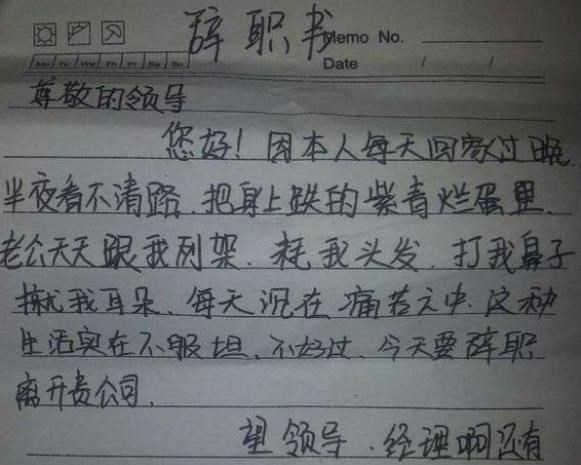 辞职书
Memo No.
Date / /
Mo Tu We Th Fr Sa Su
尊敬的领导
您好！因本人每天回家过晚.
半夜看不清路.把身上跌的紫青烂蛋里、
老公天天跟我列架.耗我头发.打我鼻子
揪我耳朵、每天沉在痛苦之中.这种
生活实在不服坦、不好过、今天要辞职
离开贵公司.
望领导.经理啊还有